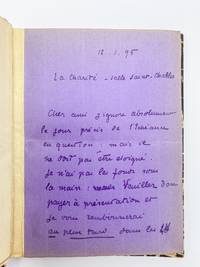 12.1.95
La Charité - salle Saint-Charles
Cher ami j'ignore absolument
le jour précis de l'échéance
en question : mais ce
ne doit pas être éloigné.
Je n'ai pas les fonds sous
la main : Veuillez donc
payer à présentation et
je vous rembourserai
au plus tard dans les